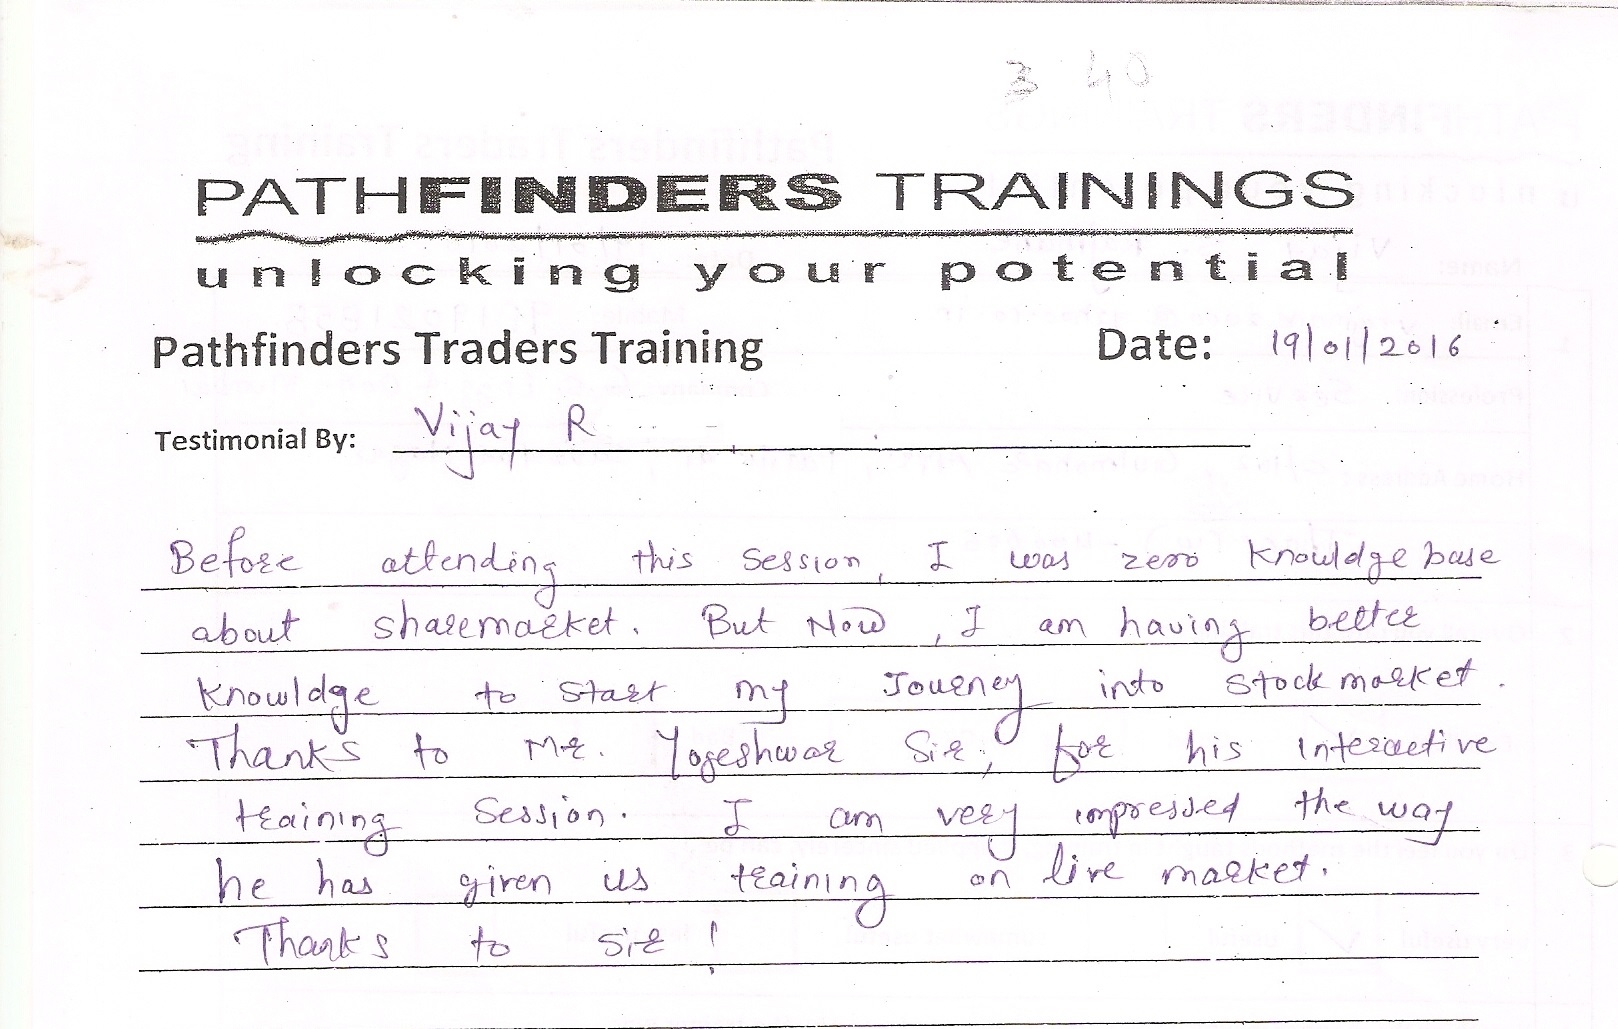 3 40
PATHFINDERS TRAININGS
unlocking your potential
Pathfinders Traders Training Date: 19/01/2016
Testimonial By: Vijay R
Before attending this Session, I was zero knowldge base
about sharemarket. But Now, I am having better
knowldge to start my Journey into Stock market.
Thanks to Mr. Yogeshwar Sir, for his Interactive
training Session. I am very impressed the way
he has given us training on live market.
Thanks to sir !